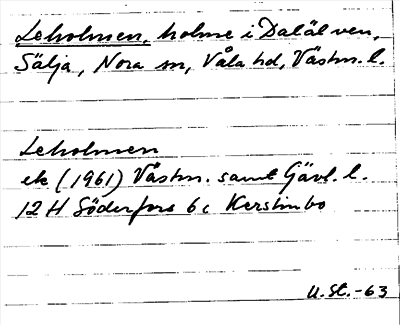 Leholmen, holme i Dalälven,
Sälja, Nora sn, Våla hd, Västm. l.
Leholmen
ek (1961) Västm. samt Gävl. l.
12 H Söderfors 6 c Kerstinbo
U.St.-63